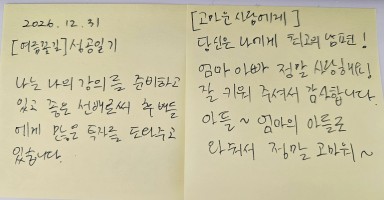 2026.12.31
[여름꽃길] 성공일기
나는 나의 강의를 준비하고
있고 좋은 선배로써 후배들
에게 많은 투자를 도와주고
있습니다.
[고마운 사람에게]
당신은 나에게 최고의 남편!
엄마 아빠 정말 사랑해요!
잘 키워 주셔서 감사합니다.
아들~ 엄마의 아들로
와줘서 정말 고마워~